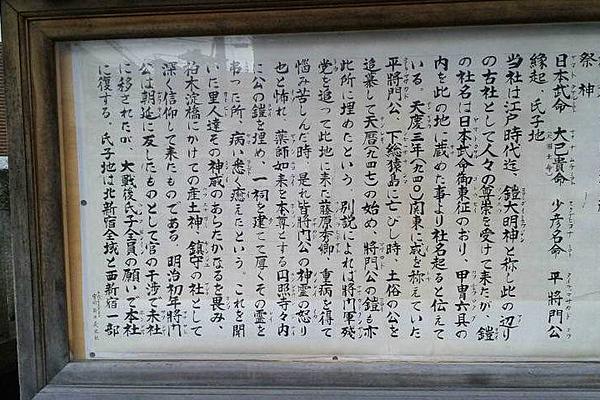 祭神
日本武命 大己貴命 少彦名命 平將門公
縁起、氏子地
当社は江戸時代迄、鎧大明神と称し此の辺り
の古社として人々の尊崇を受けて来たが、鎧
の社名は日本武命御東征のおり、甲冑六具の
内を此の地に蔵めた事より社名起ると伝えて
いる。天慶三年(九四〇)関東に威を称えていた
平將門公、下総猿島に亡びし時、土俗の公を
追慕して天暦(九四七)の始め、將門公の鎧も亦
此所に埋めたという。別説によれば將門軍残
党を追って此地に来た藤原秀郷、重病を得て
悩み苦しんだ時、是れ皆將門公の神霊の怒り
也と怖れ、薬師如来を本尊とする円照寺々内
に公の鎧を埋め、一祠を建てて厚くその霊を
弔った所、病い悉く癒えたという。これを聞
いた里人達その神威のあらたかなるを畏み、
柏木淀橋にかけての産土神、鎮守の社として
深く信仰して来たものである。明治初年將門
公は朝廷に反したものとして官の干渉で末社
に移されたが、大戦後氏子全員の願いで本社
に復する。氏子地は北新宿全域と西新宿一部